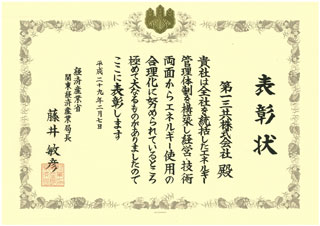 表彰状
第一三共株式会社 殿
貴社は全社を統括したエネルギー
管理体制を構築し経営・技術
両面からエネルギー使用の
合理化に努められているところ
極めて大なるものがありましたので
ここに表彰します
平成二十九年二月七日
経済産業省
関東経済産業局長
藤井敏彦